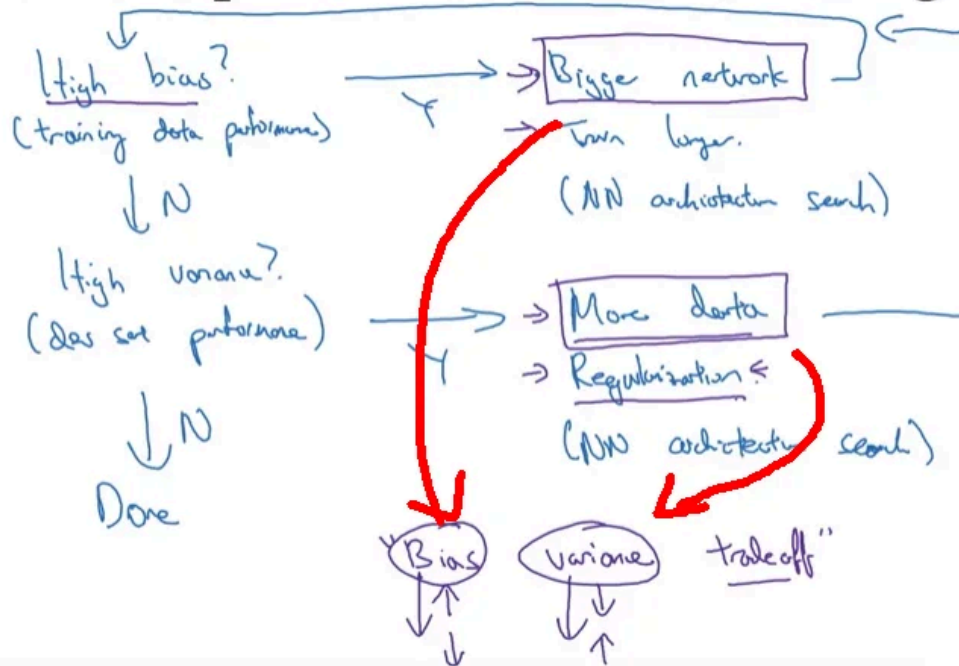 High bias?
(training data performance)
Y
Bigger network
Train longer.
(NN architecture search)
N
High variance?
(dev set performance)
Y
More data
Regularization
(NN architecture search)
N
Done
"Bias variance tradeoff"